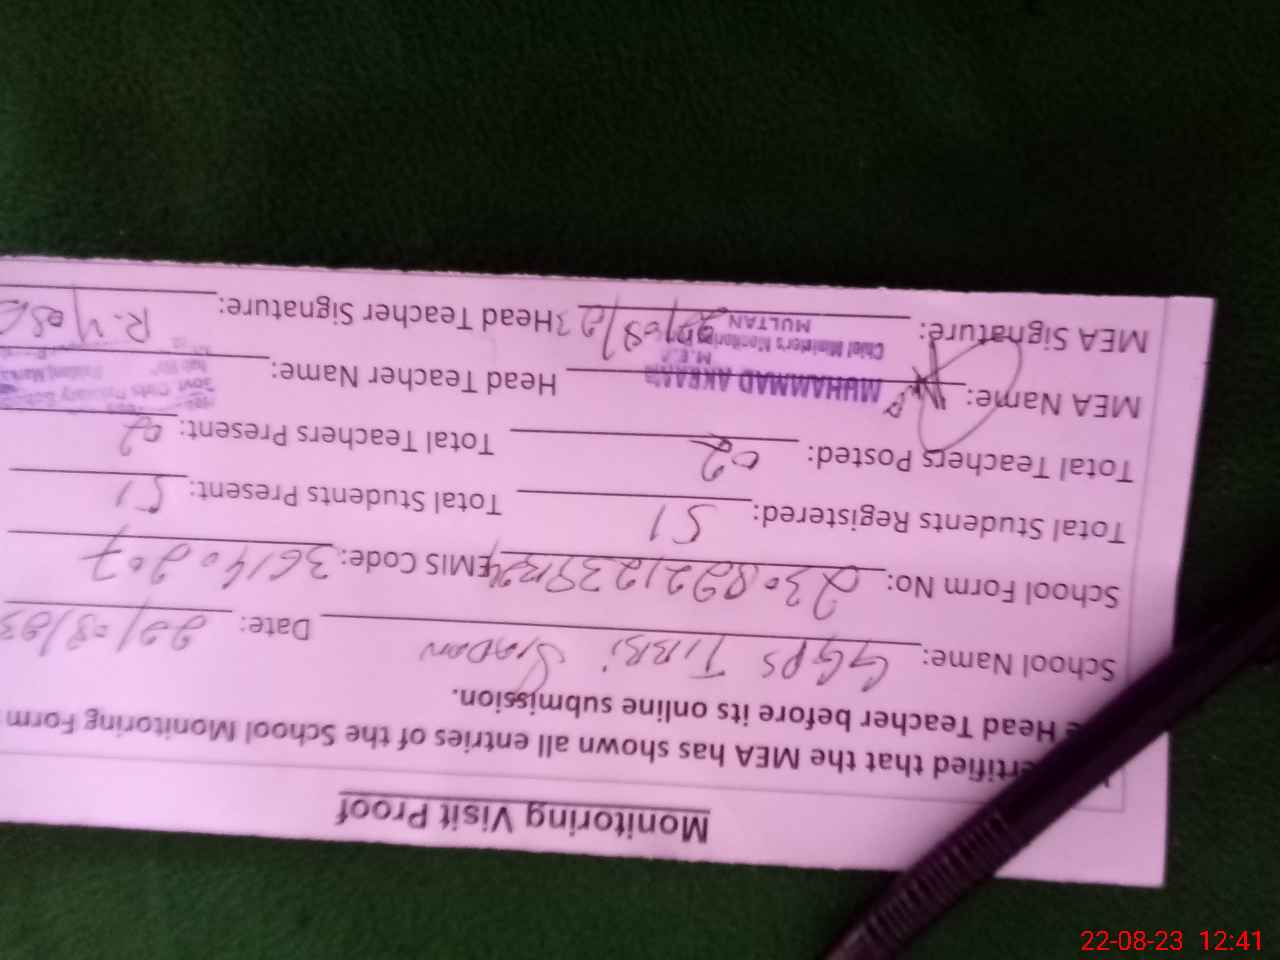 Monitoring Visit Proof
ertified that the MEA has shown all entries of the School Monitoring Form
Head Teacher before its online submission.
School Name: GGPS TIBBi Date: 22/08/23
School Form No: EMIS Code: 36140207
Total Students Registered: 51 Total Students Present: 51
Total Teachers Posted: 02 Total Teachers Present: 02
MEA Name: MUHAMMAD AKRAM Head Teacher Name:
M.E.A
Chief Minister's Monitoring
MULTAN
MEA Signature: 22/08/23 Head Teacher Signature:
22-08-23 12:41